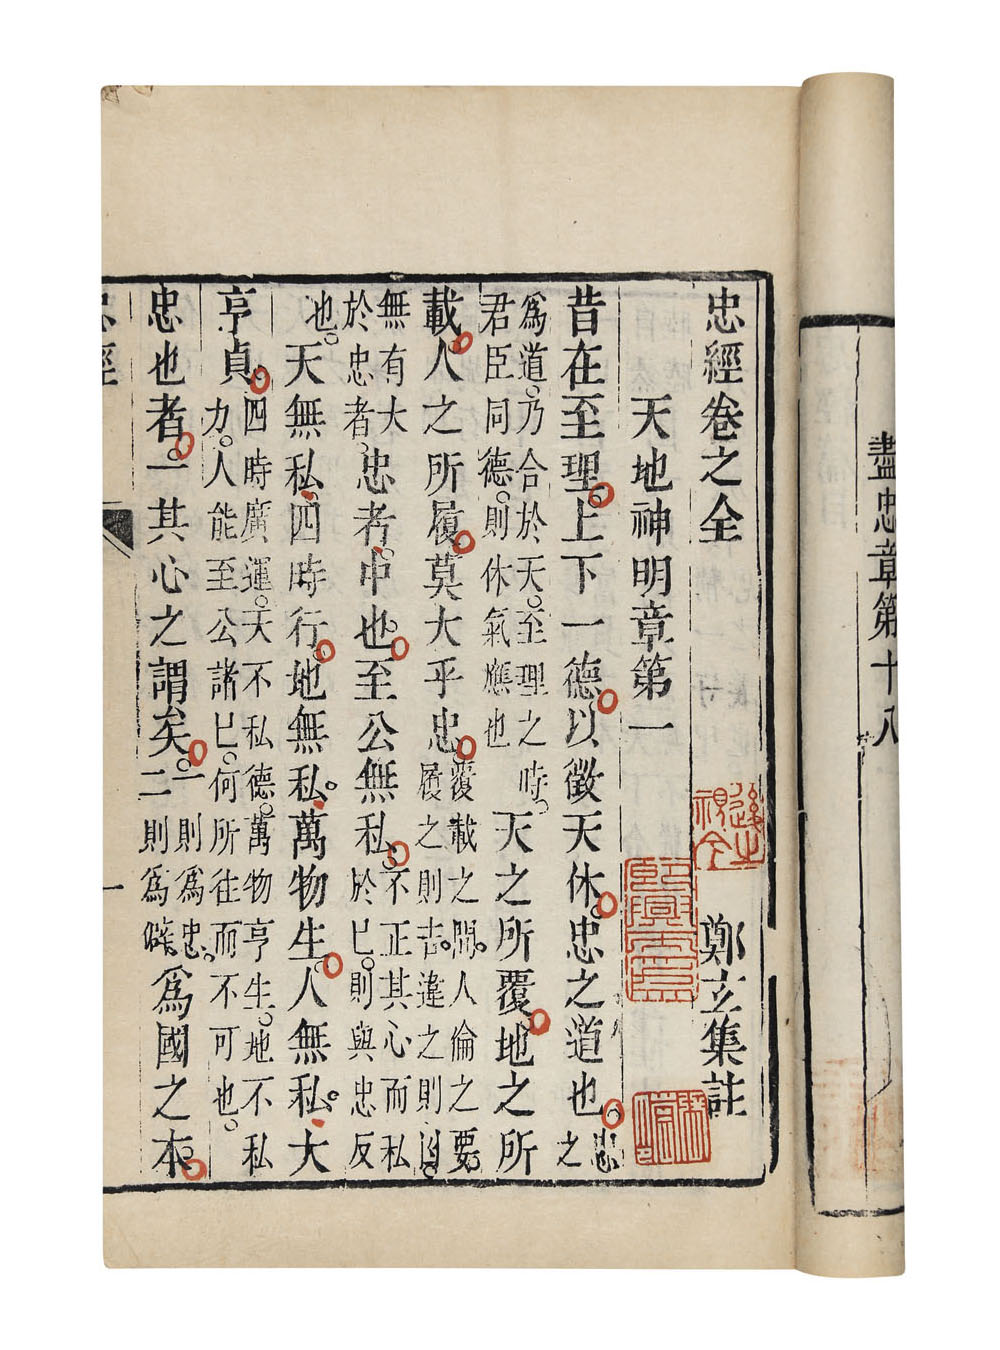 盡忠章第十八
忠經卷之全 鄭玄集註
天地神明章第一
昔在至理。上下一德。以徵天休。忠之道也。忠之
為道。乃合於天。至理之時。
君臣同德。則休氣應也
天之所覆。地之所
載。人之所履。莫大乎忠。
覆載之間。人倫之要。
履之則吉。違之則凶。
無有大
於忠者。
忠者。中也。至公無私。
不正其心而私
於已。則與忠反
也。
天無私。四時行。地無私。萬物生。人無私。大
亨貞。
四時廣運。天不私德。萬物亨生。地不私
力。人能至公諸已。何所往而不可也。
忠也者。一其心之謂矣。
一則為忠。
二則為僻
為國之本。
忠經 一